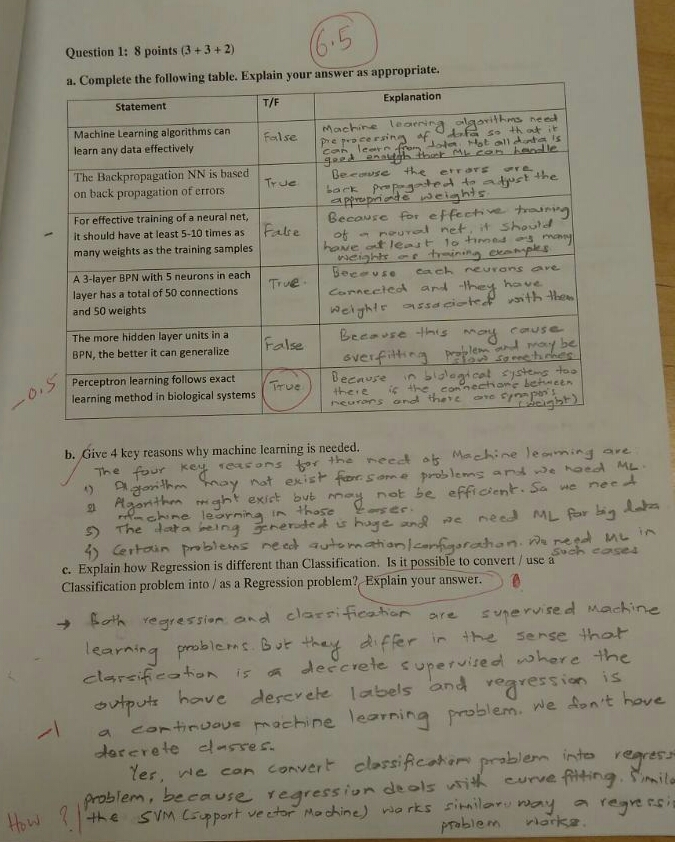 6.5
Question 1: 8 points (3 + 3 + 2)
a. Complete the following table. Explain your answer as appropriate.
Statement T/F Explanation
Machine Learning algorithms can
learn any data effectively
False
Machine learning algorithms need
preprocessing of data so that it
can learn from data. Not all data is
good enough that ML can handle
The Backpropagation NN is based
on back propagation of errors
True
Because the errors are
back propagated to adjust the
appropriate weights
For effective training of a neural net,
it should have at least 5-10 times as
many weights as the training samples
False
Because for effective training
of a neural net, it should
have at least 10 times as many
weights as training examples
A 3-layer BPN with 5 neurons in each
layer has a total of 50 connections
and 50 weights
True.
Because each neurons are
connected and they have
weights associated with them
The more hidden layer units in a
BPN, the better it can generalize
False
Because this may cause
overfitting problem and may be
slow sometimes
-0.5
Perceptron learning follows exact
learning method in biological systems
True
Because in biological systems too
there is the connections between
neurons and there are synapsis
(weight)
b. Give 4 key reasons why machine learning is needed.
The four key reasons for the need of Machine learning are
1) Algorithm may not exist for some problems and we need ML.
2) Algorithm might exist but may not be efficient. So we need
machine learning in those cases.
3) The data being generated is huge and we need ML for big data
4) Certain problems need automation/configuration. We need ML in
such cases
c. Explain how Regression is different than Classification. Is it possible to convert / use a
Classification problem into / as a Regression problem? Explain your answer.
→ Both regression and classification are supervised Machine
learning problems. But they differ in the sense that
classification is a descrete supervised where the
outputs have descrete labels and regression is
a continuous machine learning problem. We don't have
descrete classes.
-1
Yes, we can convert classification problem into regress
problem, because regression deals with curve fitting. Simila
How ?
the SVM (support vector Machine) works similar way a regressi
problem works.